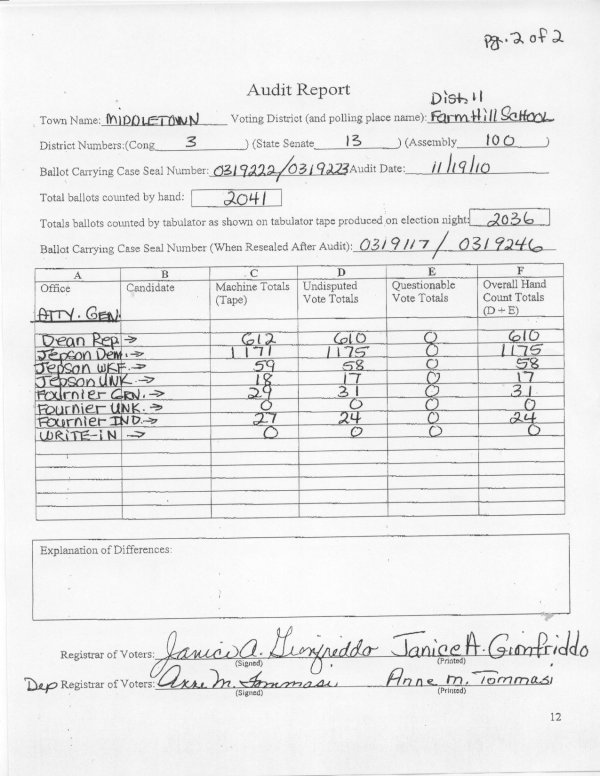 pg. 2 of 2
Audit Report
Dist. 11
Town Name: MIDDLETOWN Voting District (and polling place name): Farm Hill School
District Numbers:(Cong 3 ) (State Senate 13 ) (Assembly 100 )
Ballot Carrying Case Seal Number: 0319222/0319223 Audit Date: 11/19/10
Total ballots counted by hand: 2041
Totals ballots counted by tabulator as shown on tabulator tape produced on election night: 2036
Ballot Carrying Case Seal Number (When Resealed After Audit): 0319117 / 0319246
A B C D E F
Office Candidate Machine Totals Undisputed Questionable Overall Hand
(Tape) Vote Totals Vote Totals Count Totals
(D + E)
ATTY. GEN.
Dean Rep → 612 610 0 610
Jepson Dem. → 1171 1175 0 1175
Jepson WKF. → 59 58 0 58
Jepson UNK. → 18 17 0 17
Fournier GRN. → 29 31 0 31
Fournier UNK. → 0 0 0 0
Fournier IND. → 27 24 0 24
WRITE-IN → 0 0 0 0
Explanation of Differences:
Registrar of Voters: Janice A. Gionfriddo Janice A. Gionfriddo
(Signed) (Printed)
Dep Registrar of Voters: Anne M. Tommasi Anne M. Tommasi
(Signed) (Printed)
12